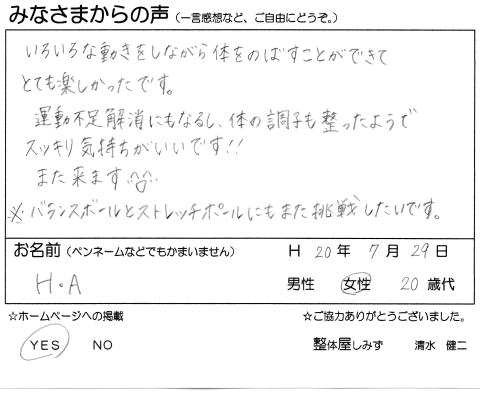 みなさまからの声（一言感想など、ご自由にどうぞ。）
いろいろな動きをしながら体をのばすことができて
とても楽しかったです。
運動不足解消にもなるし、体の調子も整ったようで
スッキリ気持ちがいいです!!
また来ます^^
※バランスボールとストレッチポールにもまた挑戦したいです。
お名前（ペンネームなどでもかまいません） H 20年 7月 29日
H・A 男性 女性 20歳代
☆ホームページへの掲載 ☆ご協力ありがとうございました。
YES NO 整体屋しみず 清水 健二